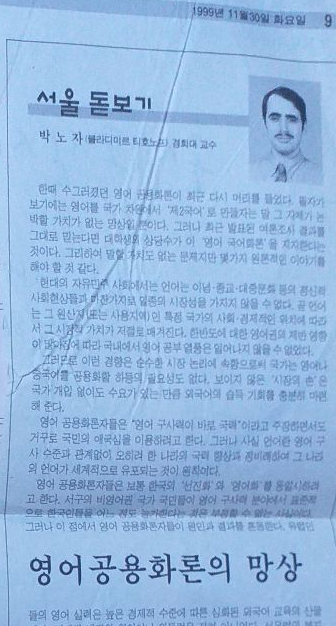 1999년 11월30일 화요일 9
서울 돋보기
박 노 자 (블라디미르 티호노프) 경희대 교수
한때 수그러졌던 영어 공용화론이 최근 다시 머리를 들었다. 필자가
보기에는 영어를 국가 차원에서 '제2국어'로 만들자는 말 그 자체가 논
박할 가치가 없는 망상일 뿐이다. 그러나 최근 발표된 여론조사 결과를
그대로 믿는다면 대학생의 상당수가 이 '영어 국어화론'을 지지한다는
것이다. 그리하여 말할 가치도 없는 문제지만 몇가지 원론적인 이야기를
해야 할 것 같다.
현대의 자유민주 사회에서는 언어는 이념·종교·대중문화 등의 정신적
사회현상들과 마찬가지로 일종의 시장성을 가지지 않을 수 없다. 곧 언어
는 그 원산지(또는 사용지)인 특정 국가의 사회·경제적인 위치에 따라
서 그 시장 가치가 저절로 매겨진다. 한반도에 대한 영어권의 제반 영향
이 많아짐에 따라 국내에서 영어 공부 열풍은 일어나지 않을 수 없었다.
그러므로 이런 경향은 순수한 시장 논리에 속함으로써 국가는 영어나
중국어를 공용화할 하등의 필요성도 없다. 보이지 않은 '시장의 손'은
국가 개입 없이도 수요가 있는 만큼 외국어의 습득 기회를 충분히 마련
해 준다.
영어 공용화론자들은 "영어 구사력이 바로 국력"이라고 주장하면서도
거꾸로 국민의 애국심을 이용하려고 한다. 그러나 사실 언어란 영어 구
사 수준과 관계없이 오히려 한 나라의 국력 향상과 정비례하여 그 나라
의 언어가 세계적으로 유포되는 것이 원칙이다.
영어 공용화론자들은 보통 한국의 '선진화'와 '영어화'를 동일시하려
고 한다. 서구의 비영어권 국가 국민들이 영어 구사력 분야에서 표준적
으로 한국인들을 어느 정도 능가한다는 것은 부정할 수 없는 사실이다.
그러나 이 점에서 영어 공용화론자들이 원인과 결과를 혼동한다. 유럽인
영어공용화론의 망상
들의 영어 실력은 높은 경제적 수준에 따른 심화된 외국어 교육의 산물